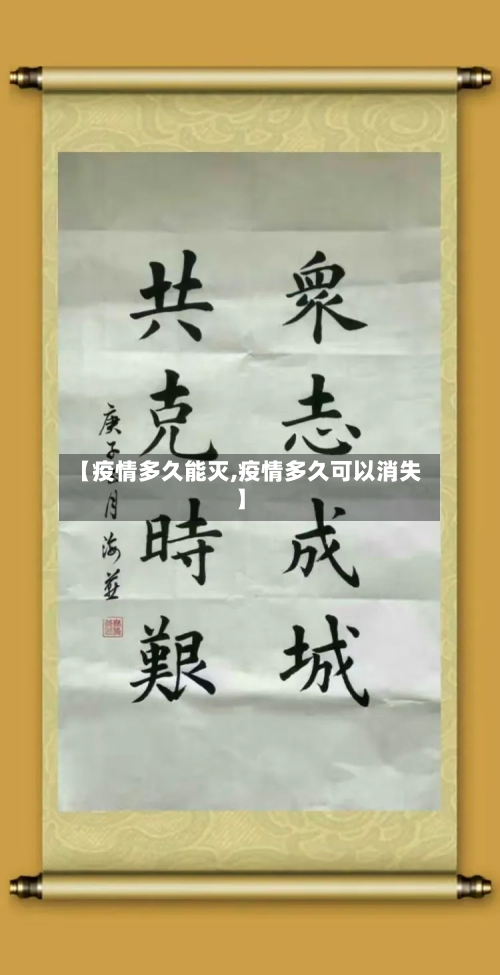 衆志成城
共克時艱
庚子
月海燕
【疫情多久能灭,疫情多久可以消失
】